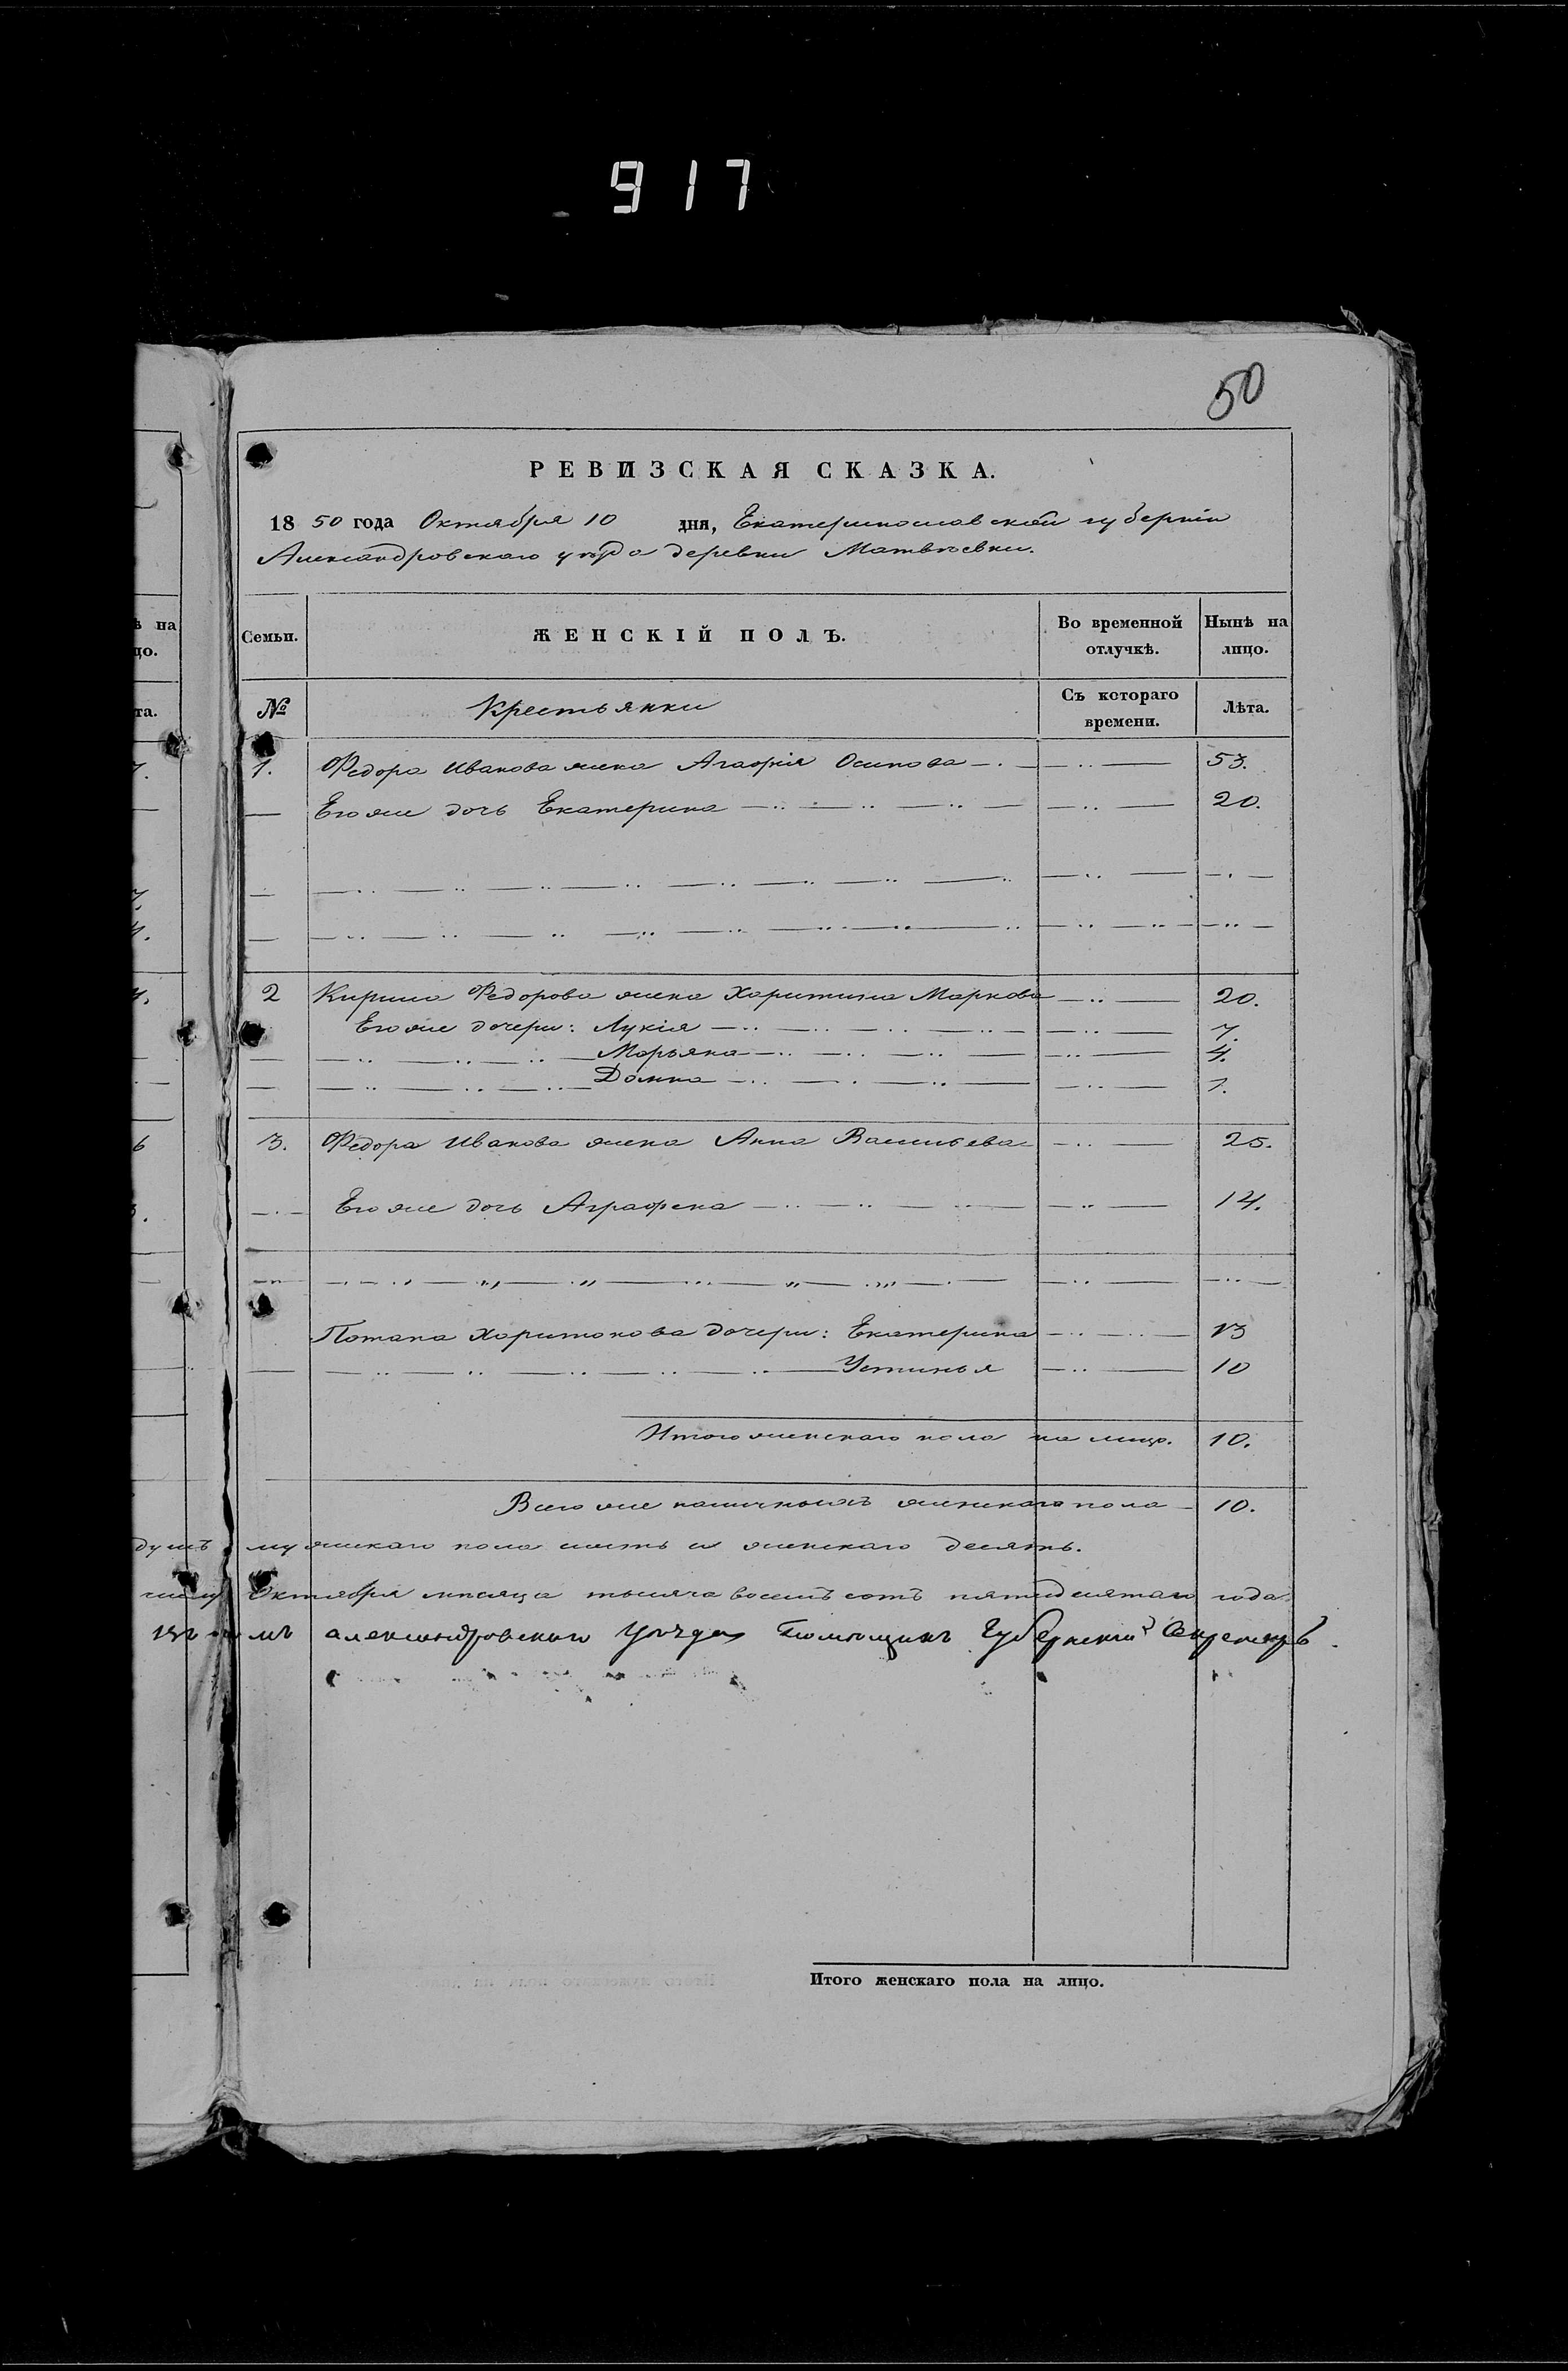 917
50
РЕВИЗСКАЯ СКАЗКА.
1850 года Октября 10 дня, Екатеринославской губернiи
Александровскаго уѣзда деревни Матвѣевки.
ѣ на
цо.
Семьи.
ЖЕНСКIЙ ПОЛЪ.
Во временной
отлучкѣ.
Нынѣ на
лицо.
та.
№
Крестьянки
Съ котораго
времени.
Лѣта.
1. Федора Иванова жена Агафiя Осипова 53.
Его же дочь Екатерина 20.
2 Кирила Федорова жена Харитина Маркова 20.
Его же дочери: Лукiя 7.
Марьяна 4.
Домна 1.
3. Федора Иванова жена Анна Васильева 25.
Его же дочь Аграфена 14.
Потапа Харитонова дочери: Екатерина 13
Устинья 10
Итого женскаго пола на лицо. 10.
Всего же наличныхъ женскаго пола 10.
душъ мужескаго пола шесть и женскаго десять.
Октября мѣсяца тысяча восемъ сотъ пятидесятаго года.
Александровскаго уѣзда Помѣщикъ Губернскiй Секретарь
Итого женскаго пола на лицо.